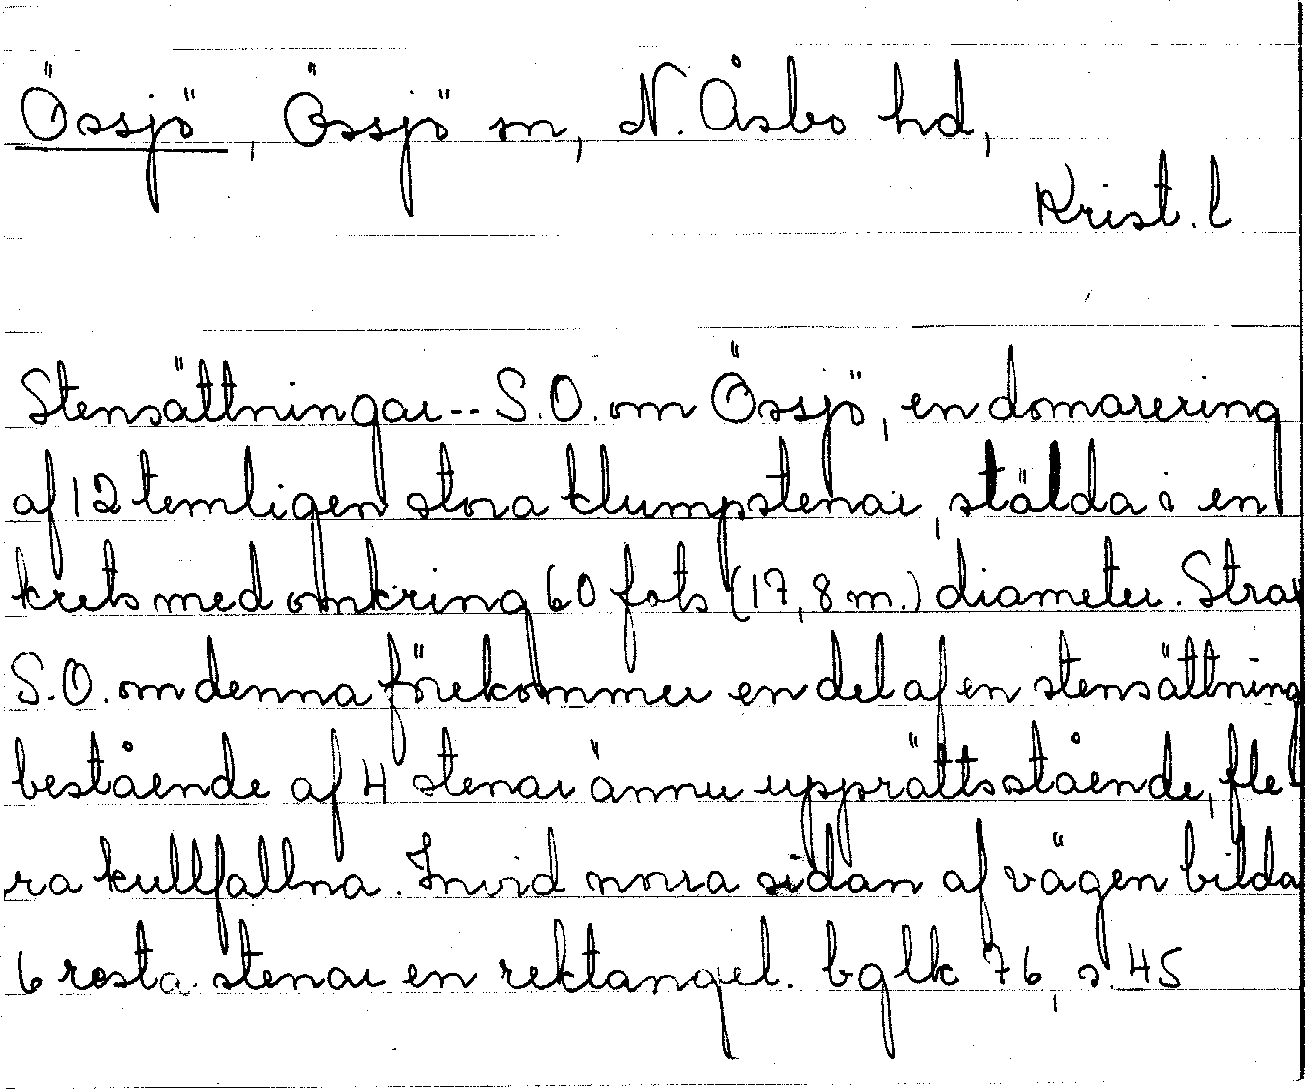 Össjö, Össjö sn, N. Åsbo hd,
Krist. l
Stensättningar -- S.O. om Össjö, en domarering
af 12 temligen stora klumpstenar, stälda i en
krets med omkring 60 fots (17,8 m.) diameter. Strax
S.O. om denna förekommer en del af en stensättning
bestående af 4 stenar ännu upprättsstående, fle-
ra kullfallna. Invid norra sidan af vägen bilda
6 resta stenar en rektangel. bglk 76, s. 45